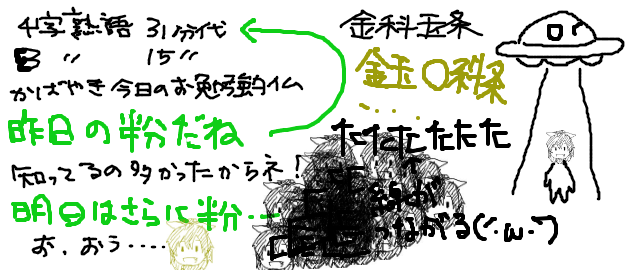 4字熟語 31分代
3 〃 15〃
かばやき今日のお勉強タイム
昨日の粉だね
知ってるの多かったからネ!
明日はさらに粉…
お、おう‥‥
金科玉条
金玉〇科条
‥‥
たたたたたた
↑
線が
つながる(´･ω･`)